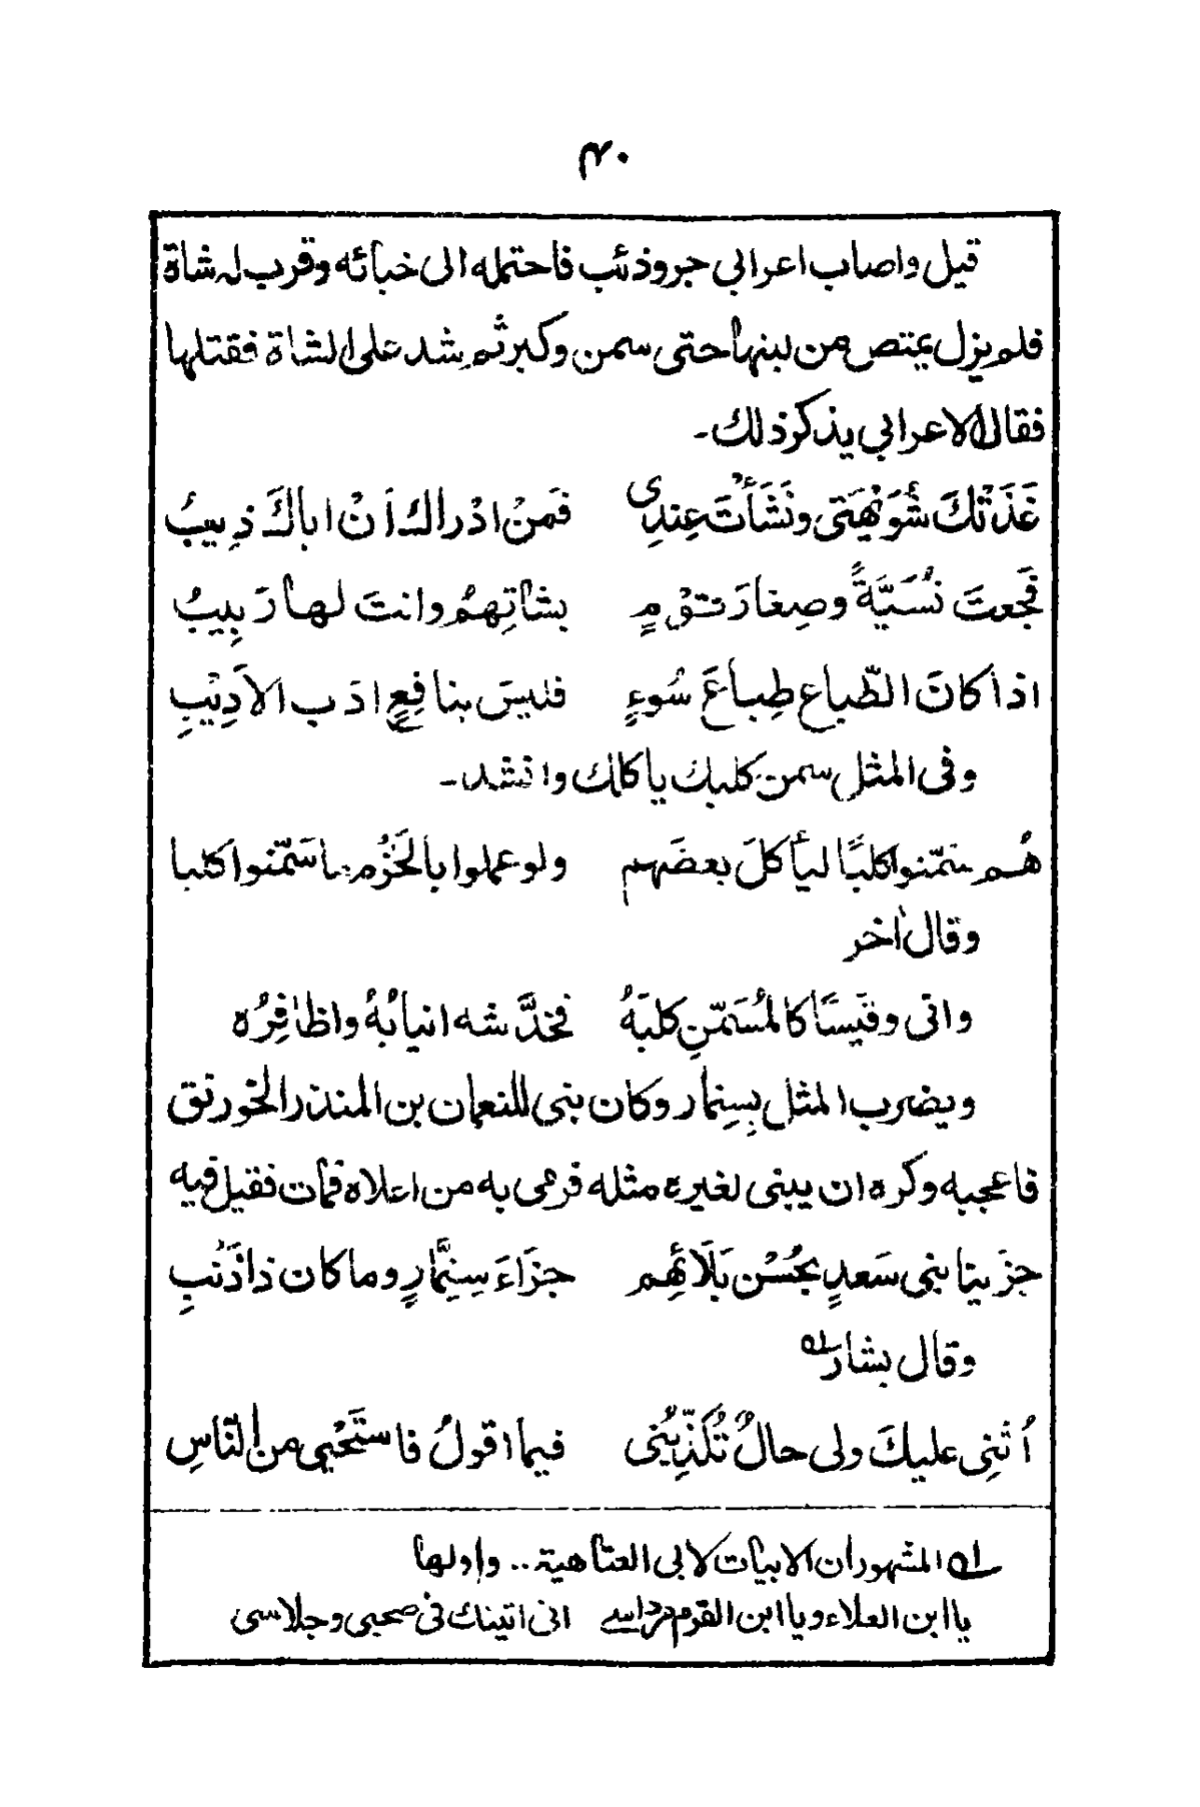 ۴۰
قيل واصاب اعرابي جرو ذئب فاحتمله الى خبائه وقرب له شاة
فلم يزل يمتص من لبنها حتى سمن وكبر ثم شد على الشاة فقتلها
فقال الاعرابي يذكر ذلك۔
غَذَتْكَ شُوَيْهَتي ونَشَأْتَ عِندِى فَمَنْ ادْراكَ اَنْ اباكَ ذِيبُ
فَجعتَ نُسَيَّةً وصِغارَ قَوْمٍ بشاتِهِمُ وانتَ لها رَبِيبُ
اذا كانَ الطّباع طِباعَ سُوءٍ فليسَ بنافِعٍ ادَب الاَدِيْبِ
وفى المثل سمن كلبك ياكلك وانشد۔
هُم سَمّنوا كلبًا ليأكلَ بعضَهم ولو عملوا بالحَزْم ما سَمّنوا كلبا
وقال اٰخر
وانى وقَيسًا كالمُسَمّنِ كلبَهُ فخدَّشه انيابُهُ واظافِرُه
ويضرب المثل بِسِنِمار وكان بنى للنعمان بن المنذر الخورنق
فاعجبه وكره ان يبنى لغيره مثله فرمى به من اعلاه فمات فقيل فيه
جزيتا بنى سَعدٍ بحُسْن بَلَائِهِم جزَاءَ سِنِمَّارٍ وما كان ذا ذَنْبِ
وقال بشار؎۱
اُثنِى عليكَ ولى حالٌ تُكَذِّبُنِى فيما اقولُ فاستَحْيي من النّاسِ
؎۱ المشهور ان الابيات لابى العتاهية.. واولها
يا ابن العلاء ويا ابن القرم مرداس انى اتيتك فى صحبي وجلاسى